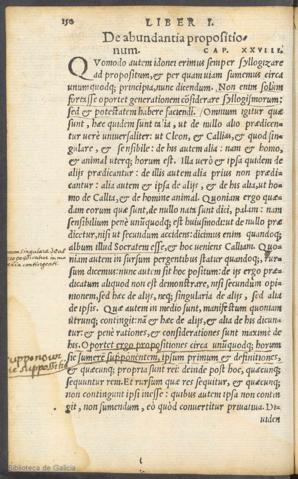 150 LIBER I.
De abundantia propositio-
num. CAP. XXVIII.
Quomodo autem idonei erimus semper syllogizare
ad propositum, & per quam viam sumemus circa
unumquodq; principia, nunc dicendum. Non enim solùm
forsisse oportet generationem cõsiderare syllogismorum;
sed & potestatem habere faciendi. Omnium igitur quæ
sunt, hæc quidem sunt talia, ut de nullo alio prædicen-
tur verè universaliter: ut Cleon, & Callias, & quod sin-
gulare, & sensibile: de his autem alia: nam & homo,
& animal uterq; horum est. Illa verò & ipsa quidem de
alijs prædicantur: de illis autem alia prius non prædi-
cantur: alia autem & ipsa de alijs, & de his alia, ut ho-
mo de Callia, & de homine animal. Quoniam ergo quæ-
dam eorum quæ sunt, de nullo nata sunt dici, palàm: nam
sensibilium penè unũquodq; est huiusmodi: ut de nullo præ
dicetur, nisi ut secundum accidens: dicimus enim quandoq;
album illud Socratem esse, & hoc veniens Calliam. Quo-
niam autem in sursum pergentibus statur quandoq;, rur-
sum dicemus: nunc autem sit hoc positum: de ijs ergo præ-
dicatum aliquod non est demonstrare, nisi secundùm opi-
nionem, sed hæc de alijs, neq; singularia de alijs, sed alia
de ipsis. Quæ autem in medio sunt, manifestum quoniam
utrunq; contingit: nã & hæc de alijs, & alia de his dicun-
tur: & penè rationes, & considerationes sunt maximè de
his. Oportet ergo propositiones circa unũquodq; horum
sic sumere supponentem, ipsum primum & definitiones,
& quæcunq; propria sunt rei: deinde post hoc, quæcunq;
sequuntur rem. Et rursum quæ res sequitur, & quæcunq;
non contingunt ipsi inesse: quibus autem ipsa non contin
git, non sumendum, eò quòd convertitur privativa. Di-
viden
Biblioteca de Galicia